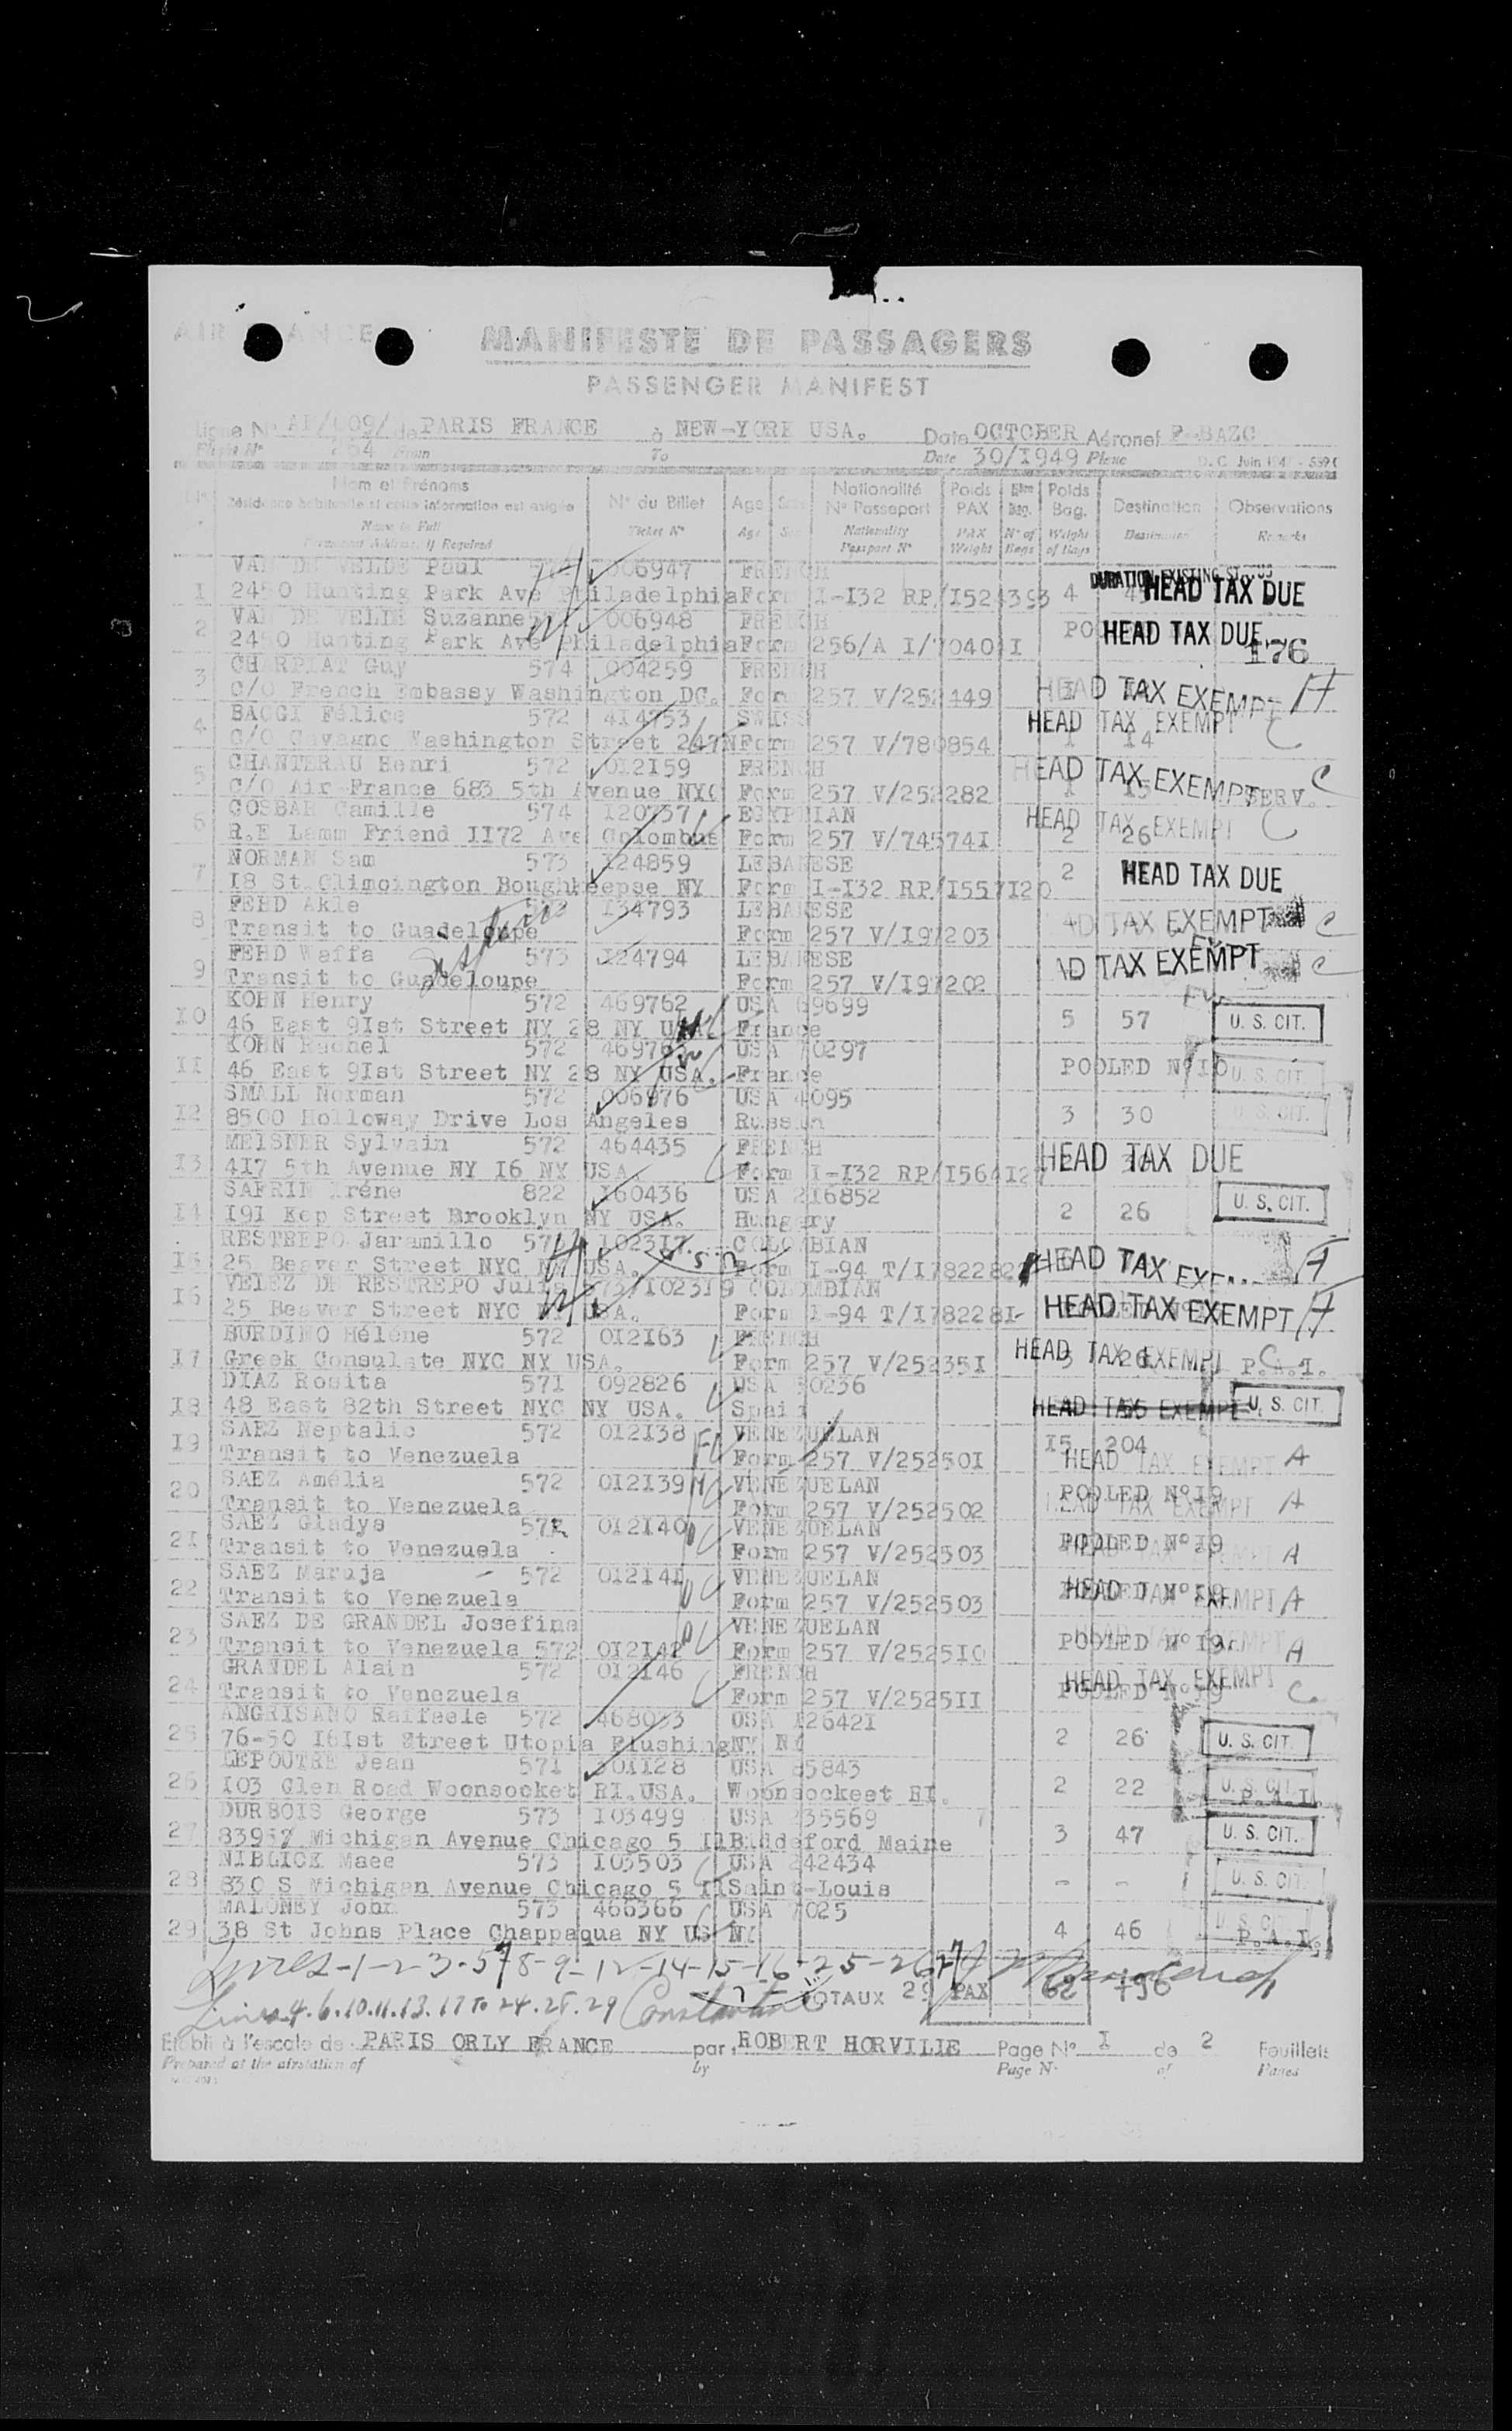 MANIFESTE DE PASSAGERS
PASSENGER MANIFEST
PARIS FRANCE à NEW-YORK USA. Date OCTOBER Aéronef F-BAZC
To Date 30/1949 Plane
Nom et Prénoms
Résidence habituelle si cette information est exigée N° du Billet Age Nationalité N° Passeport Poids PAX Poids Bag. Destination Observations
Name in Full Ticket N° Age Nationality Passport N° PAX Weight N° of Bags Weight of Bags Destination Remarks
VAN DE VELDE Paul 006947 FRENCH
1 2450 Hunting Park Ave Philadelphia Form I-I32 RP/I524393 4 HEAD TAX DUE
VAN DE VELDE Suzanne 006948 FRENCH
2 2450 Hunting Park Ave Philadelphia Form 256/A I/ HEAD TAX DUE
176
CHARPIAT Guy 574 004259 FRENCH
3 C/O French Embassy Washington DC. Form 257 V/252449 HEAD TAX EXEMPT A
BAGGI Félice 572 414753 SWISS
4 C/O Cavagno Washington Street 247N Form 257 V/780854 1 14 HEAD TAX EXEMPT C
CHANTERAU Henri 572 012159 FRENCH
5 C/O Air-France 683 5th Avenue NYC Form 257 V/252282 HEAD TAX EXEMPT SERV. C
COSBAR Camille 574 120737 EGYPTIAN
6 R.E Lamm Friend II72 Ave Colombus Form 257 V/745741 2 26 HEAD TAX EXEMPT C
NORMAN Sam 573 124859 LEBANESE
7 I8 St Climcington Boughkeepse NY Form I-I32 RP/I557I20 2 HEAD TAX DUE
FEHD Akle 573 134793 LEBANESE
8 Transit to Guadeloupe Form 257 V/197203 TAX EXEMPT C
FEHD Waffa 573 124794 LEBANESE
9 Transit to Guadeloupe Form 257 V/197202 TAX EXEMPT C
KOHN Henry 572 469762 USA 69699
10 46 East 9Ist Street NY 28 NY USA. France 5 57 U. S. CIT.
KOHN Rachel 572 46976 USA 70297
11 46 East 9Ist Street NY 28 NY USA. France POOLED N°10 U. S. CIT.
SMALL Norman 572 006976 USA 4095
12 8500 Holloway Drive Los Angeles Russian 3 30 U. S. CIT.
MEISNER Sylvain 572 464435 FRENCH
13 417 5th Avenue NY I6 NY USA Form I-I32 RP/I56412 HEAD TAX DUE
SAFRIN Iréne 822 160436 USA 216852
14 191 Kep Street Brooklyn NY USA. Hungary 2 26 U. S. CIT.
RESTREPO Jaramillo 102317 COLOMBIAN
15 25 Beaver Street NYC NY USA. Form I-94 T/I782282 HEAD TAX A
VELEZ DE RESTREPO Julia 572 102319 COLOMBIAN
16 25 Beaver Street NYC NY USA. Form I-94 T/I782281 HEAD TAX EXEMPT A
BURDINO Héléne 572 012163 FRENCH
17 Greek Consulate NYC NY USA. Form 257 V/252351 3 26 HEAD TAX EXEMPT C P.A.I.
DIAZ Rosita 571 092826 USA 50236
18 48 East 82th Street NYC NY USA. Spain HEAD TAX EXEMPT U. S. CIT.
SAEZ Neptalie 572 012138 VENEZUELAN
19 Transit to Venezuela Form 257 V/252501 15 204 HEAD TAX EXEMPT A
SAEZ Amélia 572 012139 VENEZUELAN
20 Transit to Venezuela Form 257 V/252502 POOLED N°19 HEAD TAX EXEMPT A
SAEZ Gladys 572 012140 VENEZUELAN
21 Transit to Venezuela Form 257 V/252503 POOLED N°19 A
SAEZ Maruja 572 012141 VENEZUELAN
22 Transit to Venezuela Form 257 V/252503 HEAD TAX EXEMPT A
SAEZ DE GRANDEL Josefina VENEZUELAN
23 Transit to Venezuela 572 012142 Form 257 V/252510 POOLED N°19 A
GRANDEL Alain 572 012146 FRENCH
24 Transit to Venezuela Form 257 V/252511 POOLED N°19 HEAD TAX EXEMPT C
ANGRISANO Raffaele 572 468033 USA 126421
25 76-50 I6Ist Street Utopia Flushing NY NY 2 26 U. S. CIT.
LEPOUTRE Jean 571 301128 USA 85843
26 103 Glen Road Woonsocket RI.USA. Woonsockeet RI. 2 22 U. S. CIT. P.A.I.
DURBOIS George 573 103499 USA 235569
27 83957 Michigan Avenue Chicago 5 Ill Biddeford Maine 3 47 U. S. CIT.
NIBLICK Maee 573 103503 USA 242434
28 830 S Michigan Avenue Chicago 5 Ill Saint-Louis - - U. S. CIT.
MALONEY John 573 466366 USA 7025
29 38 St Johns Place Chappaqua NY US NY 4 46 U. S. CIT. P.A.I.
Lines-1-2-3-5-7-8-9-12-14-15-16-25-26-27
Lines 4.6.10.11.13.17 To 24.28.29 TOTAUX 29 PAX 62 796
Etabli à l'escale de PARIS ORLY FRANCE par ROBERT HORVILLE Page N° I de 2 Feuillets
Prepared at the airstation of by Page N° of Pages